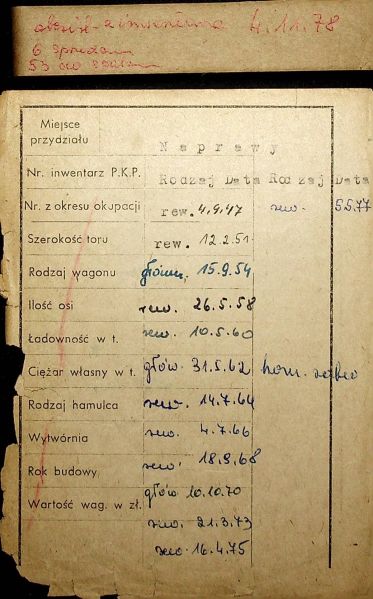 4.11.78
6
53 do
Miejsce przydziału
Naprawy
Nr. inwentarz P.K.P. Rodzaj Data Rodzaj Data
Nr. z okresu okupacji rew. 4.9.47 rew. 5.5.77
Szerokość toru rew. 12.2.51
Rodzaj wagonu główn. 15.9.54
Ilość osi rew. 26.5.58
Ładowność w t. rew. 10.5.60
Ciężar własny w t. głów. 31.5.62
Rodzaj hamulca rew. 14.7.64
Wytwórnia rew. 4.7.66
Rok budowy rew. 18.9.68
Wartość wag. w zł. głów 10.10.70
rew. 21.3.73
rew 16.4.75